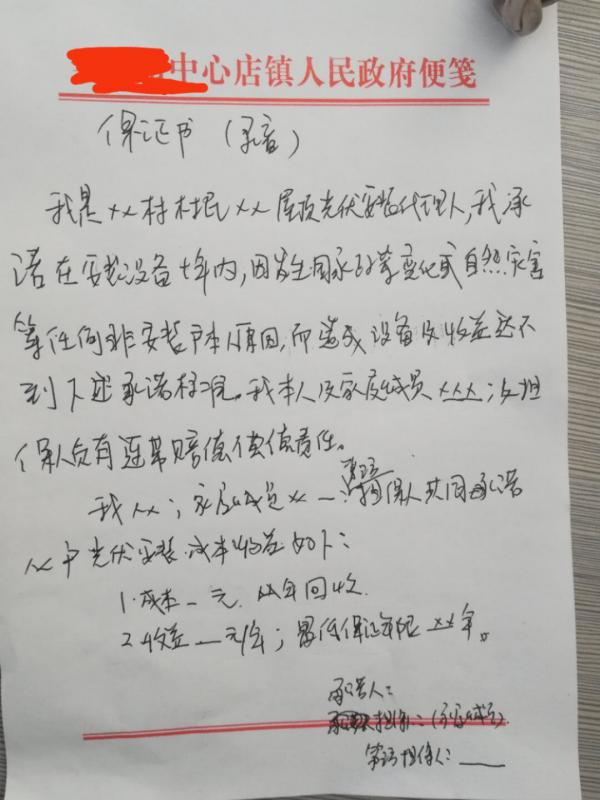 中心店镇人民政府便笺
保证书(录音)
我是××村村民××屋顶光伏安装代理人,我承
诺在安装设备十年内,因发生国家政策变化或自然灾害
等任何非安装户本人原因,而造成设备及收益达不
到下述承诺标准。我本人及家庭成员×××;及担
保人负有连带赔偿偿债责任。
我××;家庭成员××一担保人共同承诺
××户光伏安装.成本收益如下:
1.成本__元.××年回收.
2.收益__元/年;最低保证年限××年。
承诺人:
担保:(家庭成员).
担保人:____